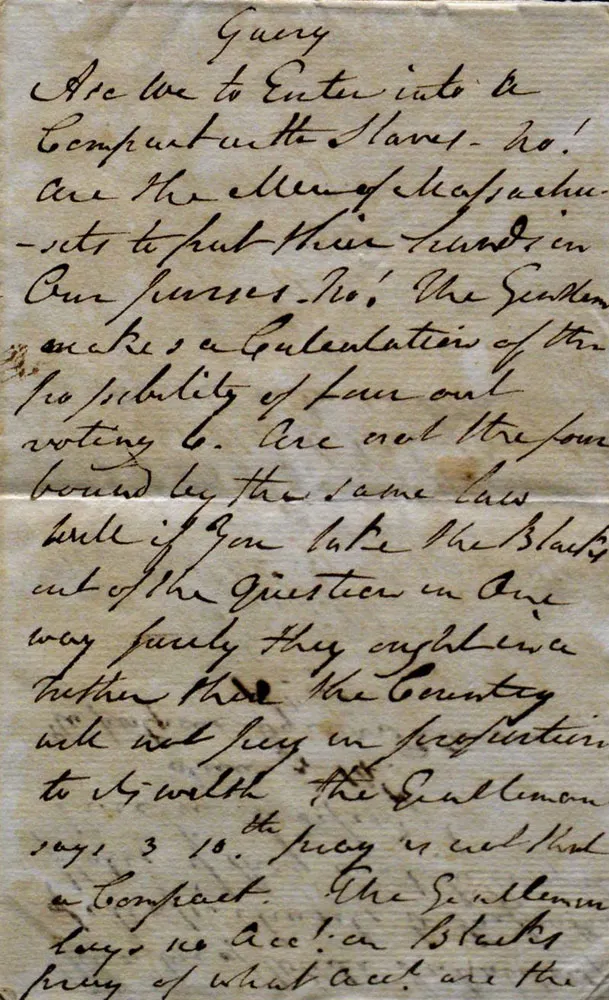 Guery
Are We to Enter into a
Compact with Slaves - No!
are the Men of Massachu-
-sets to put their hands in
Our purses - No! The Gentlem
makes a Calculation of the
possibility of four out
voting 6. Are not the four
bound by the same law
will if You take the Blacks
out of the Question in One
way surely they ought in a
the Country
will not pay in proportion
to its welth the Gentleman
says 3 10.th pray is not that
a Compact. The Gentleman
lays no Acct. on Blacks
pray of what Acct. are the